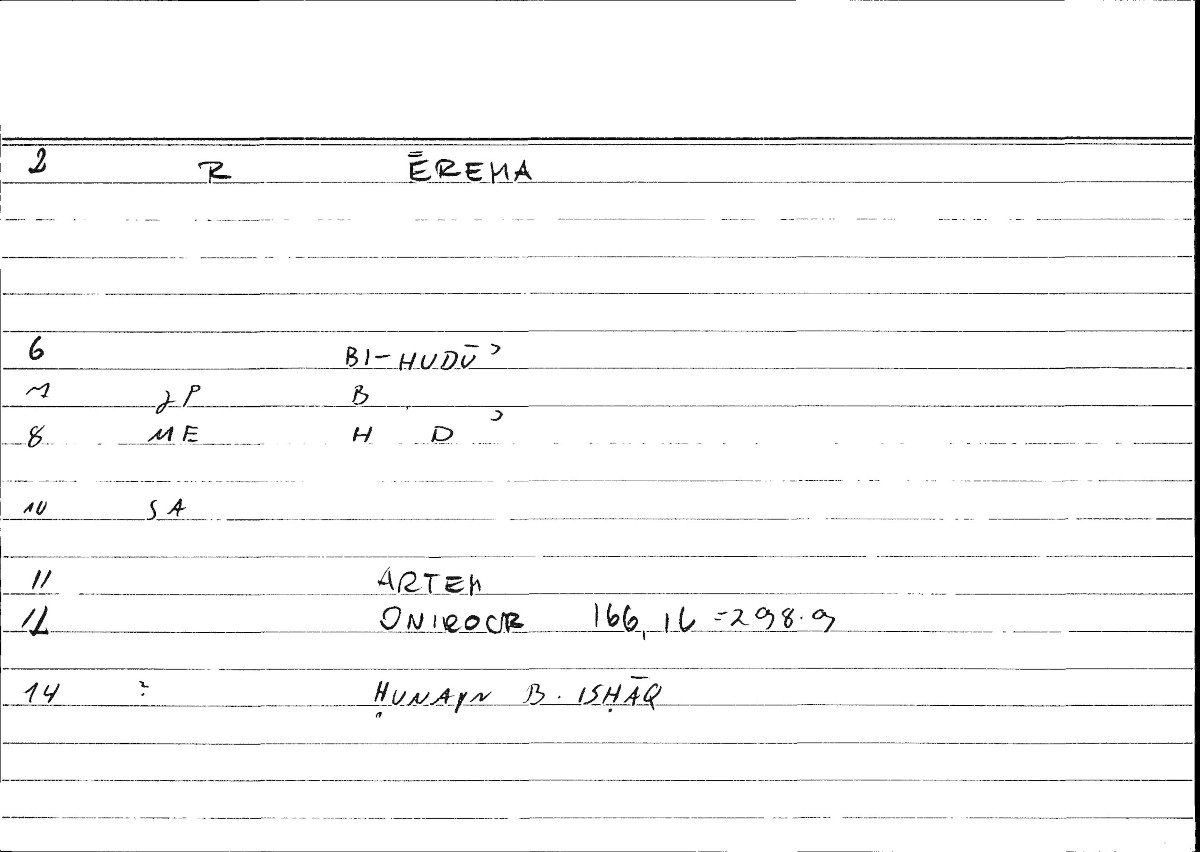 2 R ĒREMA
6 BI-HUDŪʾ
7 JP B
8 ME H D ʾ
10 SA
11 ARTEM
12 ONIROCR 166, 16 = 298.9
14 ? ḤUNAYN B. ISḤĀQ